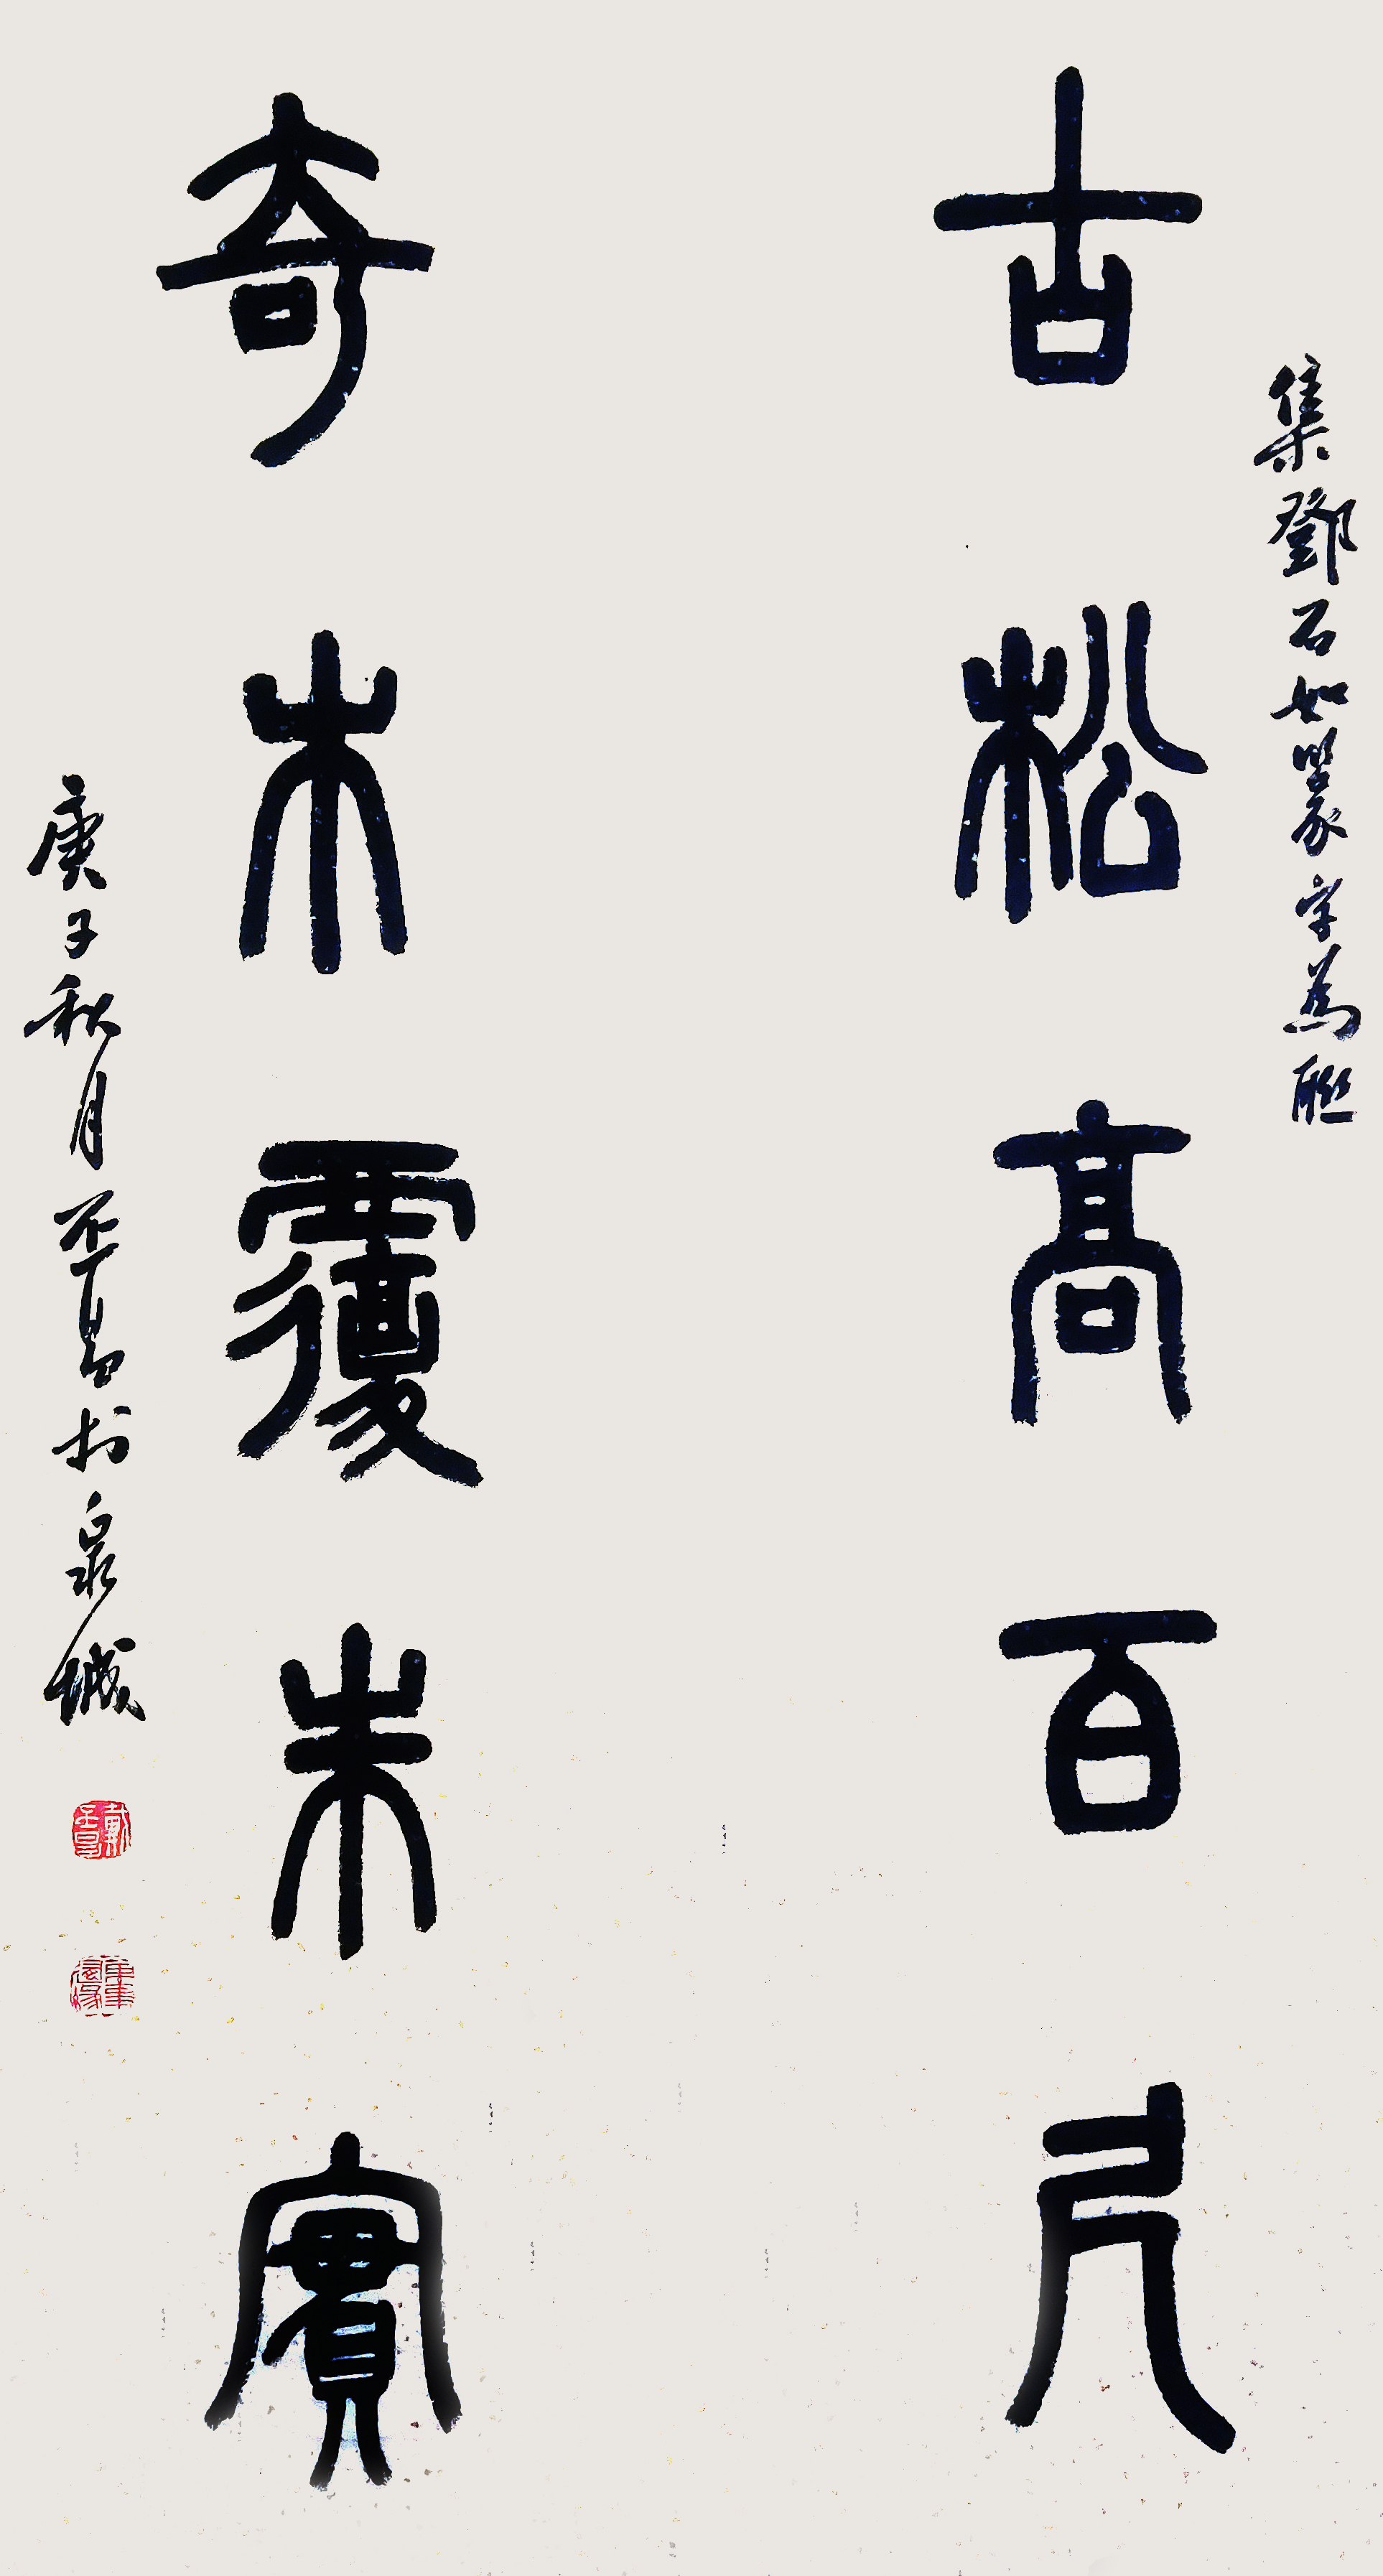 集鄧石如篆字為聯
古松高百尺
奇木覆朱實
庚子秋月
於泉城